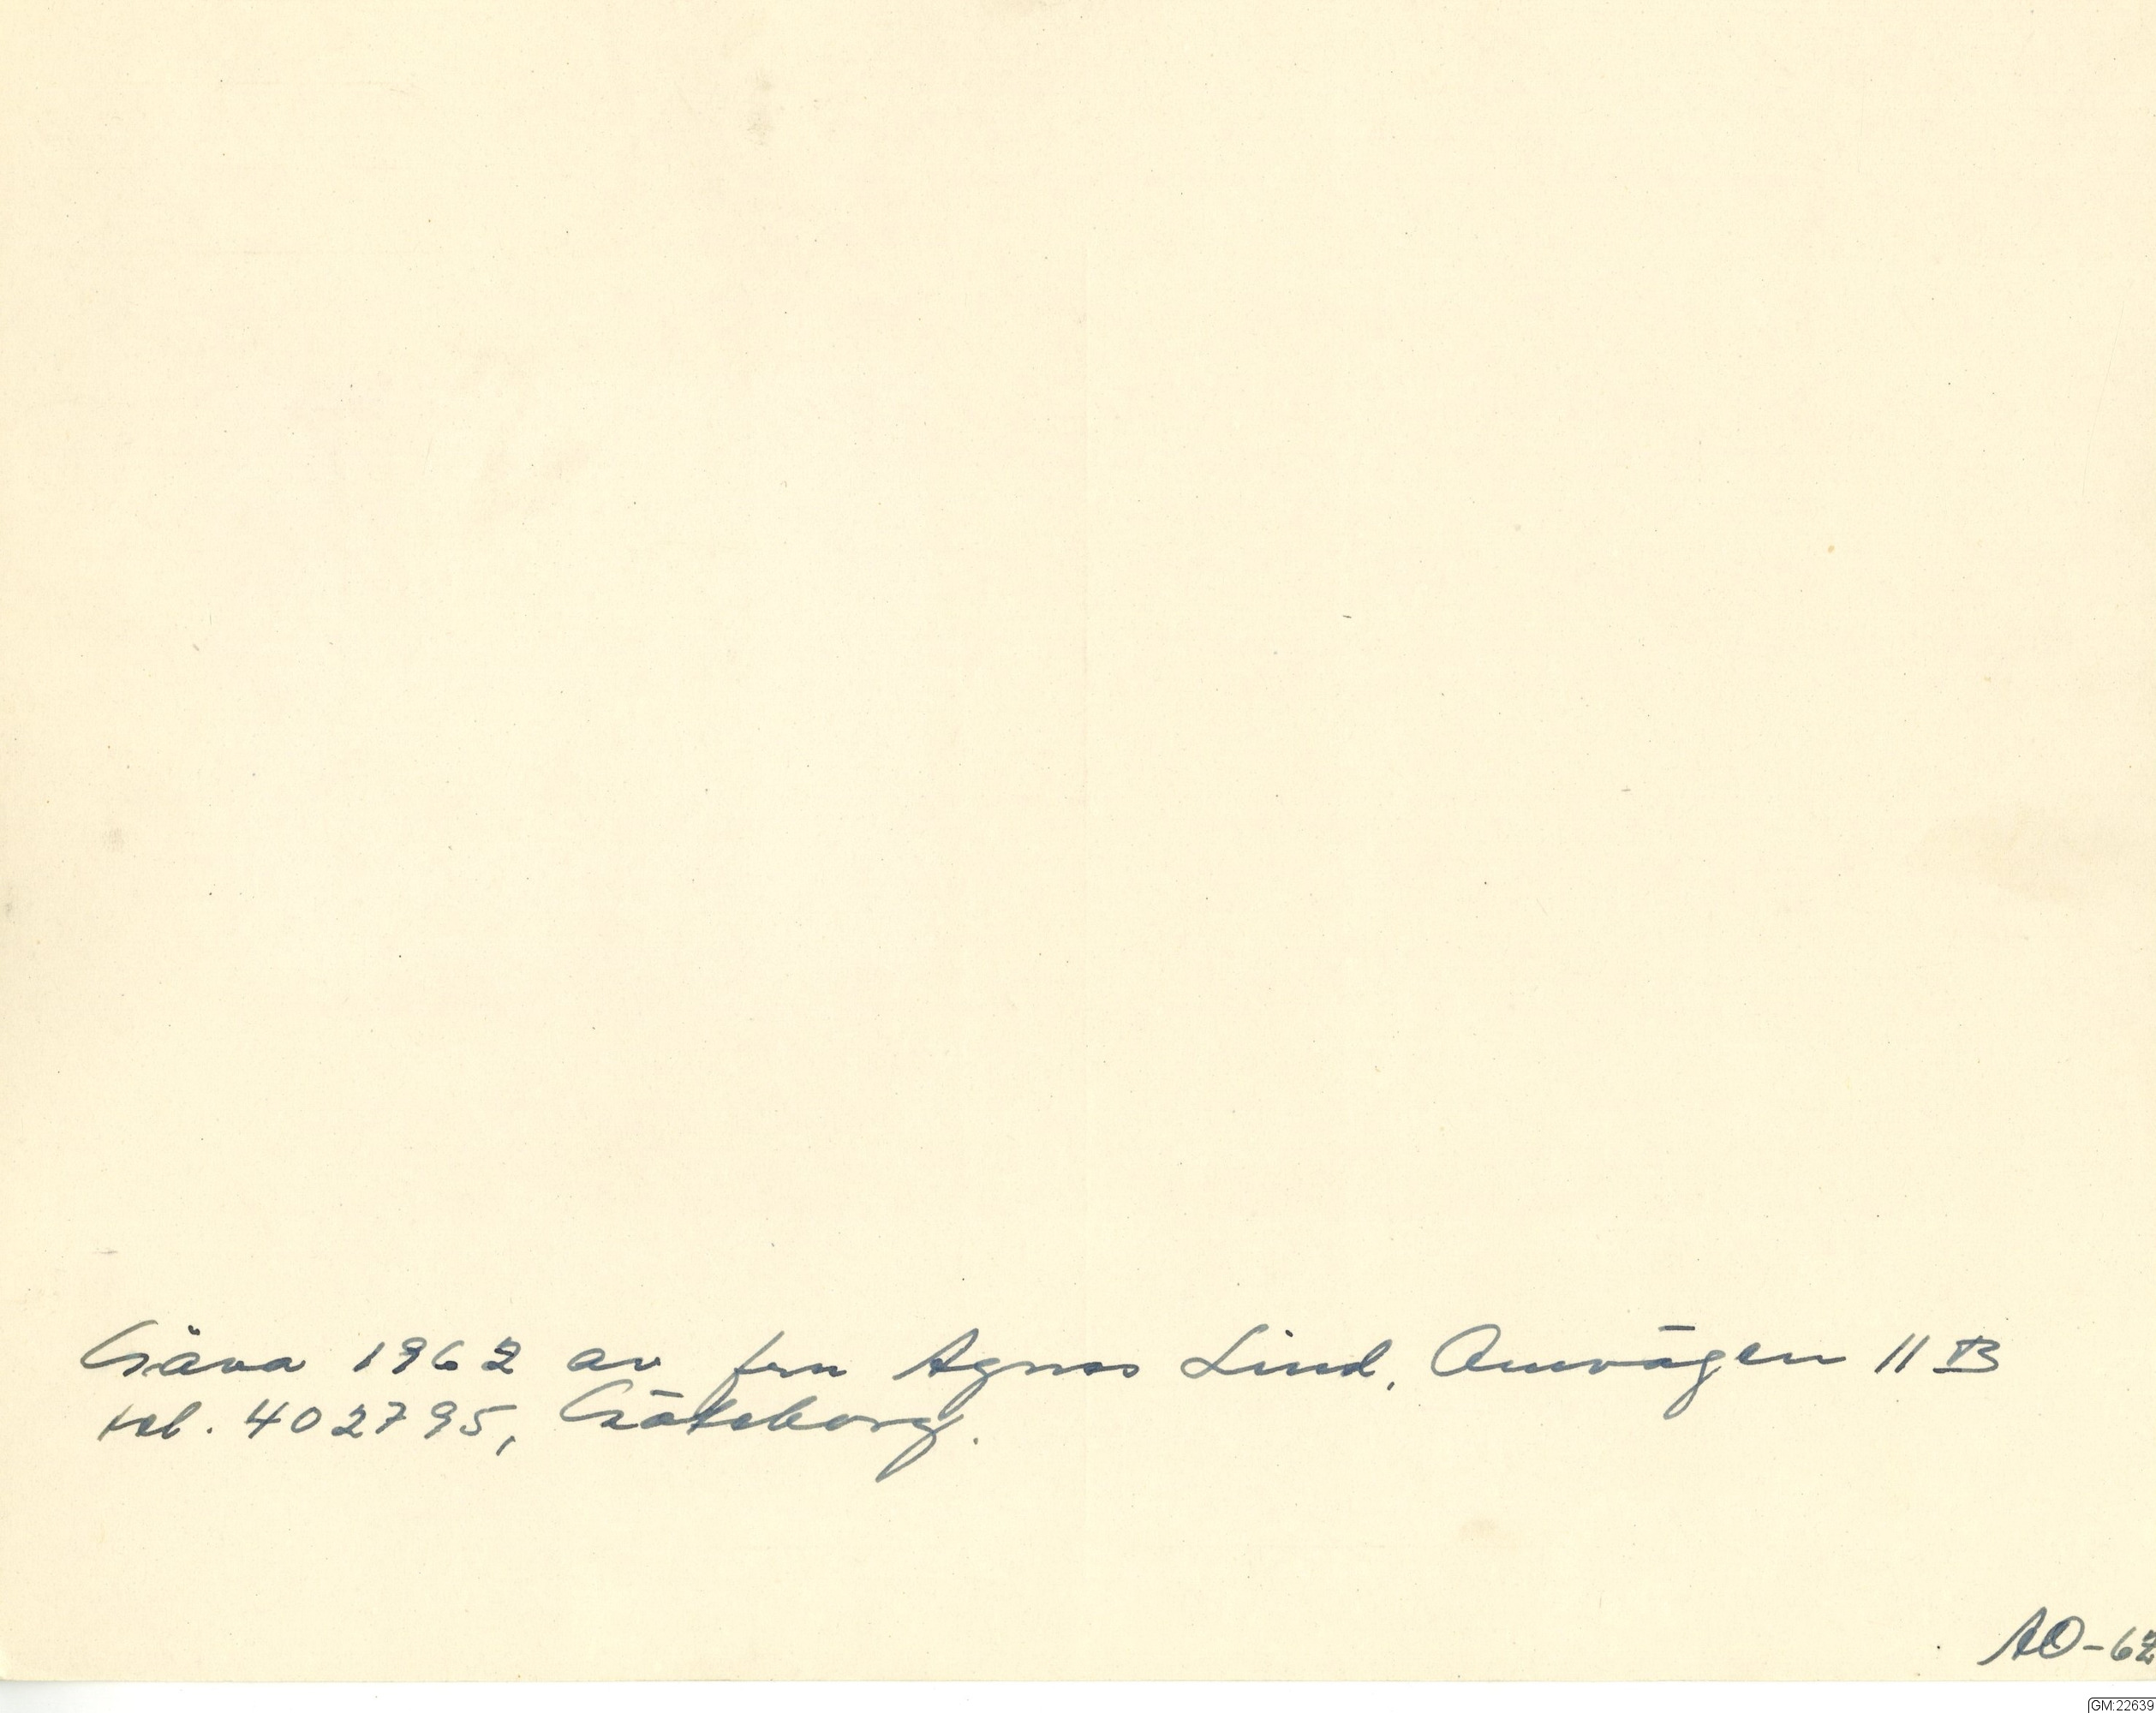 Gåva 1962 av fru Agnes Lind, Omvägen 11 B
tel. 402795, Göteborg.
AO-62
GM:22639